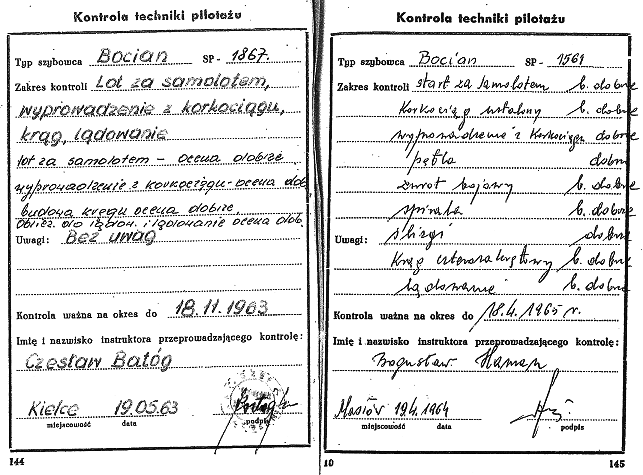 Kontrola techniki pilotażu
Typ szybowca Bocian SP - 1867.
Zakres kontroli Lot za samolotem,
wyprowadzenie z korkociągu,
krąg, lądowanie
lot za samolotem - ocena dobrze
wyprowadzenie z korkociągu - ocena dob.
budowa kręgu ocena dobrze,
oblicz. do lądow. i lądowanie ocena dob.
Uwagi: Bez uwag
Kontrola ważna na okres do 18.11.1963
Imię i nazwisko instruktora przeprowadzającego kontrolę:
Czesław Batóg
Kielce 19.05.63
miejscowość data podpis
144
Kontrola techniki pilotażu
Typ szybowca Bocian SP - 1561
Zakres kontroli start za samolotem b. dobrze
Korkociąg ustalony b. dobrze
wyprowadzenie z korkociągu dobrze
pętla dobrze
zwrot bojowy b. dobrze
spirala b. dobrze
Uwagi: ślizgi dobrze
Krąg czterozakrętowy b. dobrze
Lądowanie b. dobrze
Kontrola ważna na okres do 18.4.1965 r.
Imię i nazwisko instruktora przeprowadzającego kontrolę:
Bogusław Haman
Masłów 19.4.1964
miejscowość data podpis
10 145